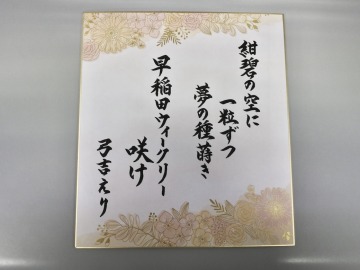 紺碧の空に
一粒ずつ
夢の種蒔き
早稲田ウィークリー
咲け
弓吉えり